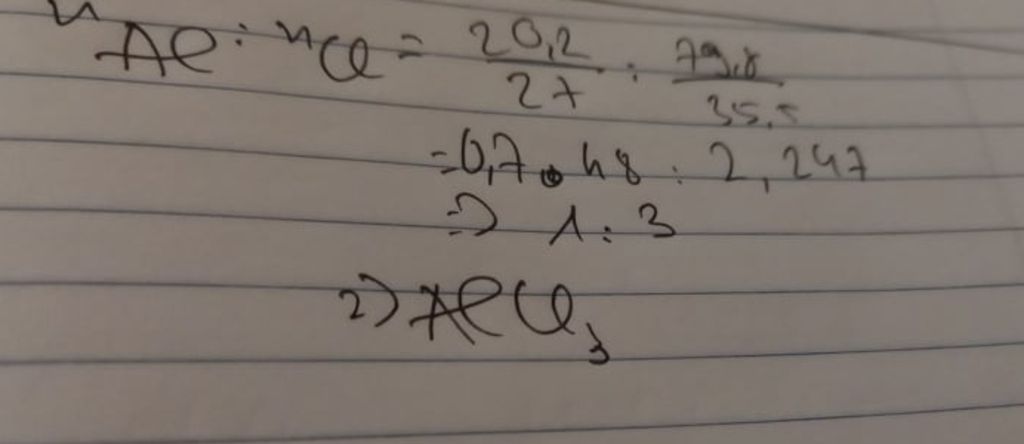 nAl : nCl = 20,2/27 : 79,8/35,5
=0,748 : 2,247
=> 1:3
=> AlCl₃